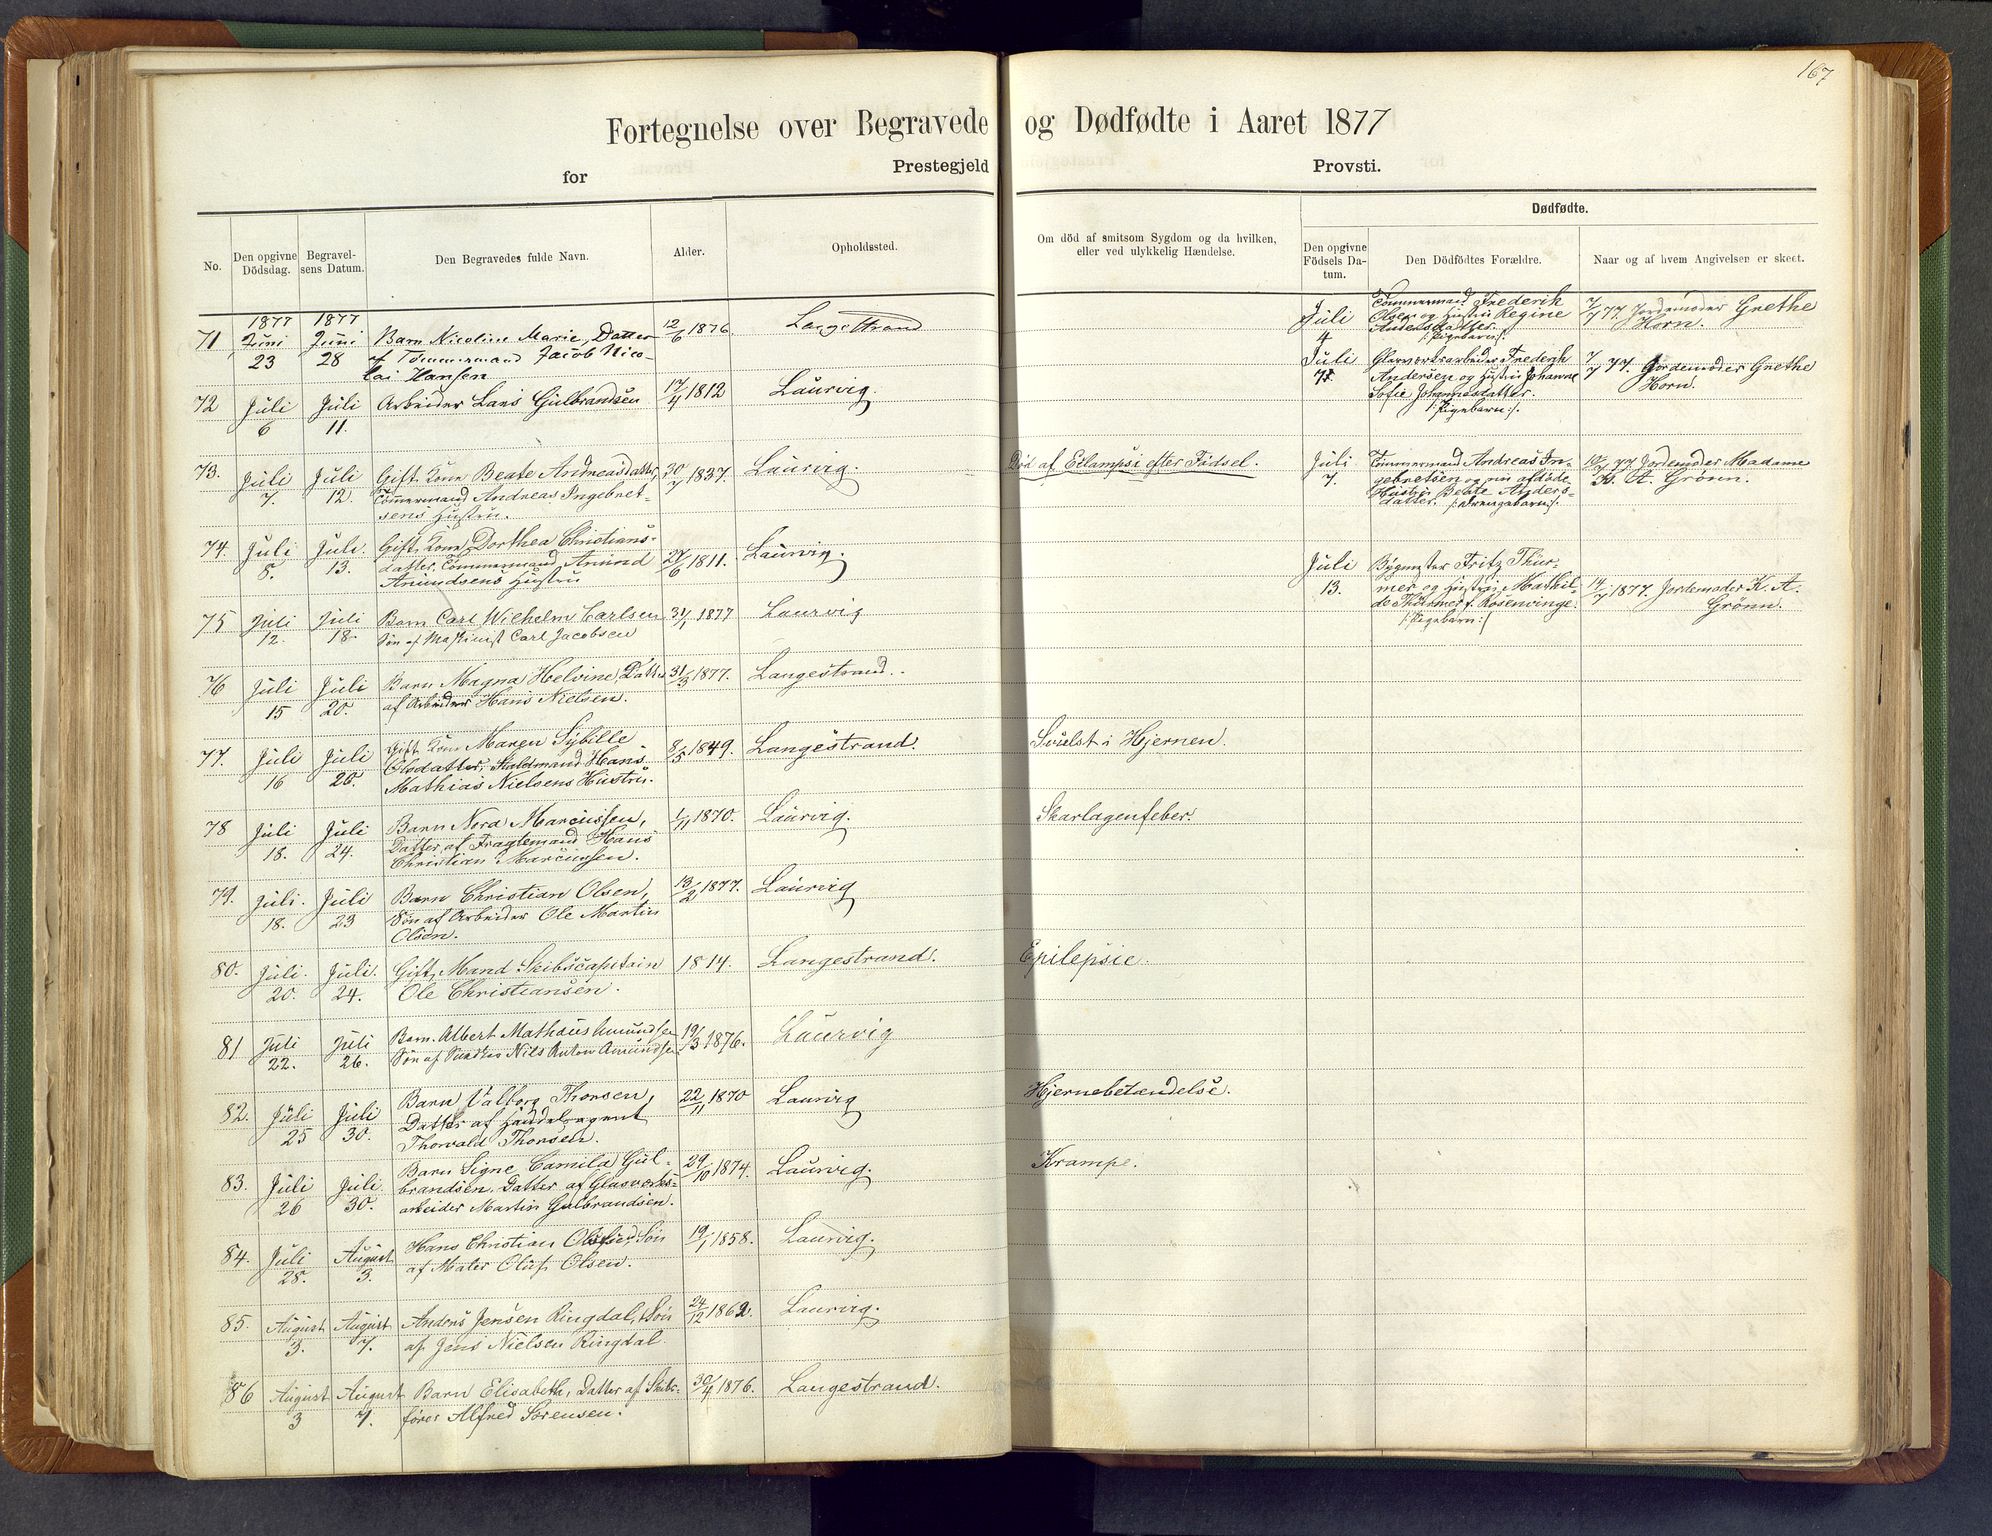 167
Fortegnelse over Begravede og Dødfødte i Aaret 1877
for Prestegjeld Provsti.
No.
Den opgivne Dödsdag.
Begravelsens Datum.
Den Begravedes fulde Navn.
Alder.
Opholdssted.
Om död af smitsom Sygdom og da hvilken,
eller ved ulykkelig Hændelse.
Dødfødte.
Den opgivne Födsels Datum.
Den Dödfödtes Forældre.
Naar og af hvem Angivelsen er skeet.
71 1877 Juni 23 1877 Juni 28 Barn Nicoline Marie, Datter 12/6 1876. Langestrand
af Tømmermand Jacob Nico-
lai Hansen
72 Juli 6 Juli 11. Arbeider Lars Gulbrandsen 17/4 1812 Laurvig.
73. Juli 7. Juli 12. Gift Kone Beate Andreasdatter, 30/7 1837. Laurvig. Död af Eclampsi efter Födsel.
Tömmermand Andreas Ingebret-
sens Hustru.
74. Juli 8. Juli 13. Gift Kone Dorthea Christians- 27/6 1811. Laurvig.
datter, Tömmermand Amund
Amundsens Hustru
75 Juli 12. Juli 18. Barn Carl Wilhelm Carlsen 31/1 1877 Laurvig
Søn af Maskinist Carl Jacobsen
76 Juli 15 Juli 20. Barn Magna Helvine, Datter 31/3 1877. Langestrand.
af Arbeider Hans Nielsen.
77. Juli 16 Juli 20. Gift Kone Maren Sybille 8/5 1849. Langestrand. Svulst i Hjernen.
Olsdatter, Hans
Mathias Nielsens Hustru.
78 Juli 18. Juli 24. Barn Nora Marcussen, 1/11 1870. Laurvig. Skarlagenfeber.
Datter af Fragtemand Hans
Christian Marcussen.
79. Juli. 18. Juli 23 Barn Christian Olsen, 13/2 1877. Laurvig
Søn af Arbeider Ole Martin
Olsen.
80. Juli. 20. Juli. 24. Gift Mand Skibscapitain 1814. Langestrand. Epilepsie.
Ole Christiansen.
81 Juli 22. Juli 26. Barn Albert Mathæus Amundsen 19/3 1876. Laurvig
Søn af Snedker Nils Anton Amundsen
82. Juli 25 Juli 30. Barn Valborg Thorsen, 22/11 1870 Laurvig Hjernebetændelse.
Datter af Handelsagent
Thorvald Thorsen.
83. Juli 26 Juli 30. Barn Signe Camila Gul- 29/10 1874. Laurvig. Krampe.
brandsen, Datter af Glasværks-
arbeider Martin Gulbrandsen.
84. Juli 28. August 3. Hans Christian Olsen, Søn 19/1 1858. Laurvig.
af Maler Oluf Olsen.
85. August 3. August 7. Anders Jensen Ringdal, Søn 24/12 1862. Laurvig.
af Jens Nielsen Ringdal
86 August 3 August 7. Barn Elisabeth, Datter af Skibs- 30/4 1876. Langestrand.
fører Alfred Sørensen.
Juli 4 Tømmermand Frederik 7/7 77. Jordemoder Grethe
Olsen og Hustru Regine Horn.
Andersdatter.
/:Pigebarn:/.
Juli 7. Glasværksarbeider Frederik 7/7 77. Jordemoder Grethe
Andersen og Hustru Johanne Horn.
Sofie Johannesdatter.
/:Pigebarn:/.
Juli 7. Tømmermand Andreas In- 10/7 77 Jordemoder Madame
gebretsen og nu afdøde K. A. Grönn.
Hustru Beate Anders-
datter. /:Drengebarn:/.
Juli 13. Bygmester Fritz Thur-
mer og Hustru Mathil- 14/7 1877. Jordemoder K. A.
de Thurmer f. Rosenvinge. Grönn.
/:Pigebarn:/